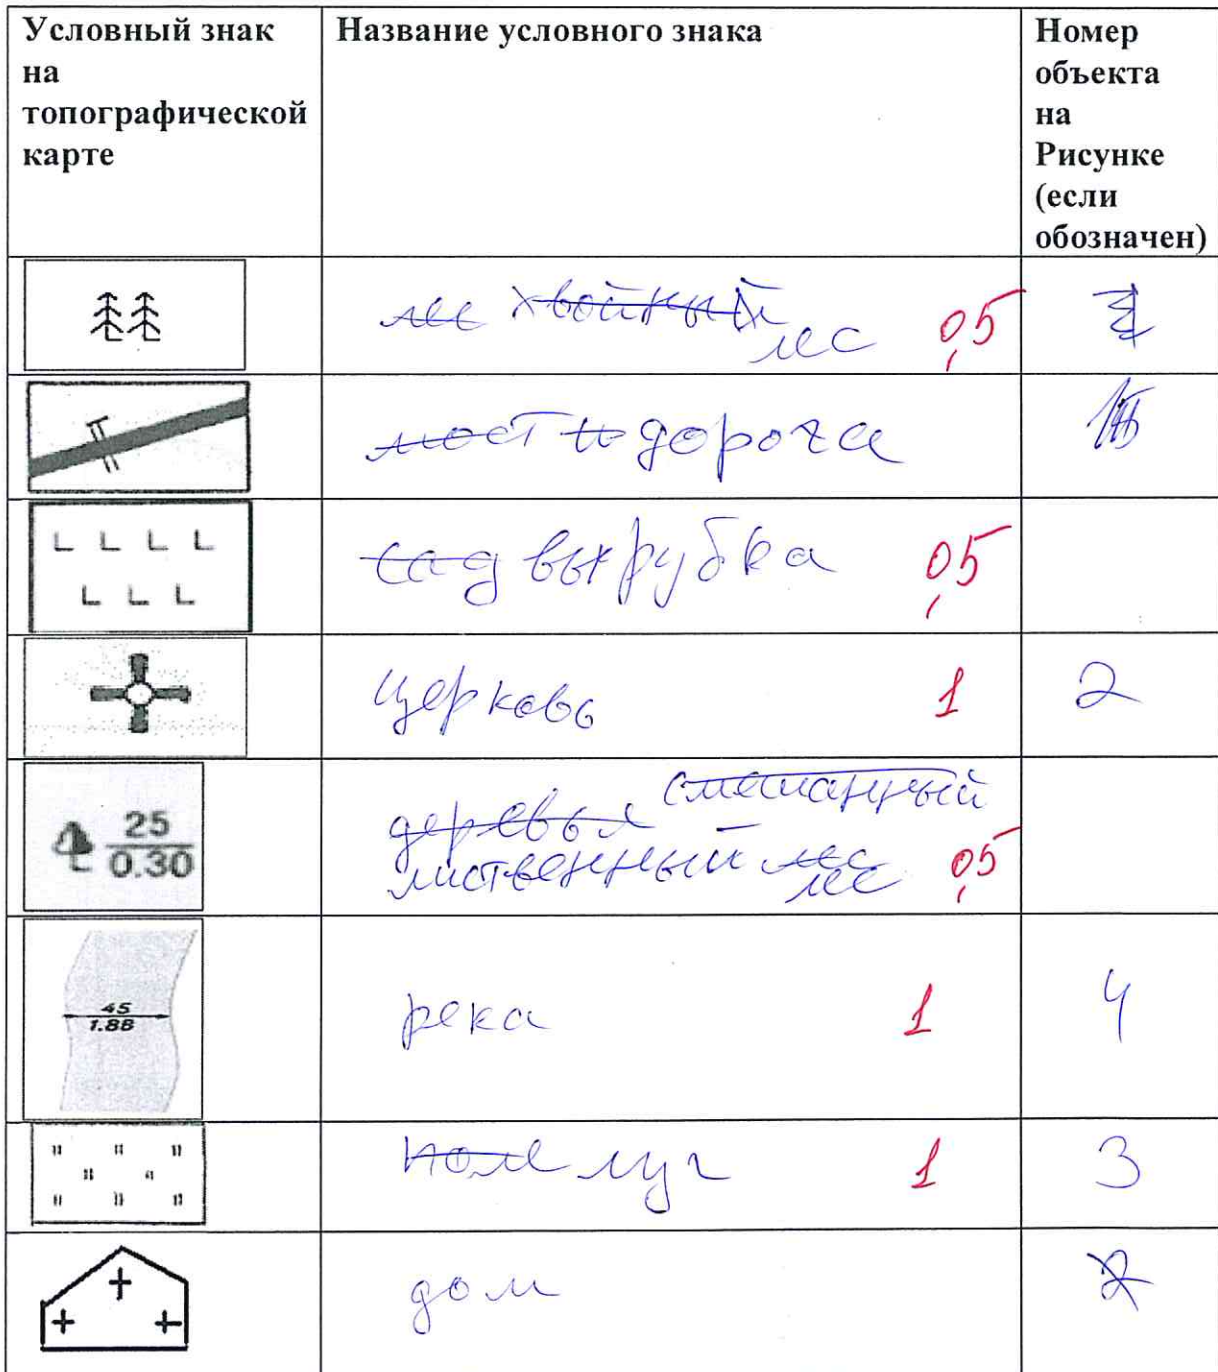 Условный знак
на
топографической
карте
Название условного знака
Номер
объекта
на
Рисунке
(если
обозначен)
лес хвойный
лес 0,5
мост и дорога
сад вырубка 0,5
церковь 1 2
25
0.30
деревья смешанный
лиственный лес
лес 0,5
45
1.88
река 1 4
поле луг 1 3
дом 2